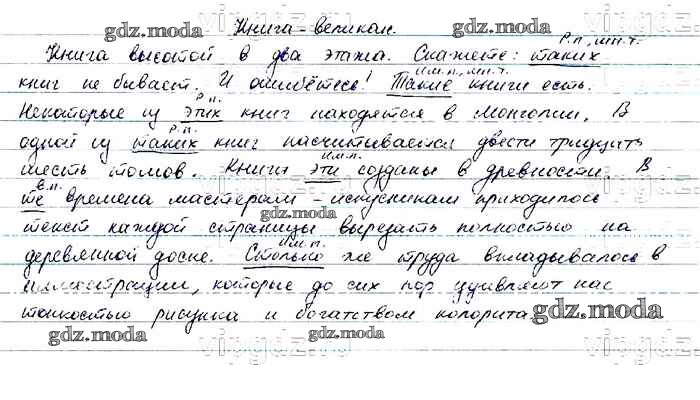 Книга-великан.
Р.п., мн.ч.
Книга высотой в два этажа. Скажете: таких
Им.п., мн.ч.
книг не бывает. И ошибётесь! Такие книги есть.
Р.п.
Некоторые из этих книг находятся в Монголии. В
Р.п.
одной из таких книг насчитывается двести тридцать
Им.п.
шесть томов. Книги эти созданы в древности. В
В.п.
те времена мастерам-искусникам приходилось
текст каждой страницы вырезать полностью на
Им.п.
деревянной доске. Столько же труда вкладывалось в
иллюстрации, которые до сих пор удивляют нас
тонкостью рисунка и богатством колорита.
gdz.moda
vipgdz.ru